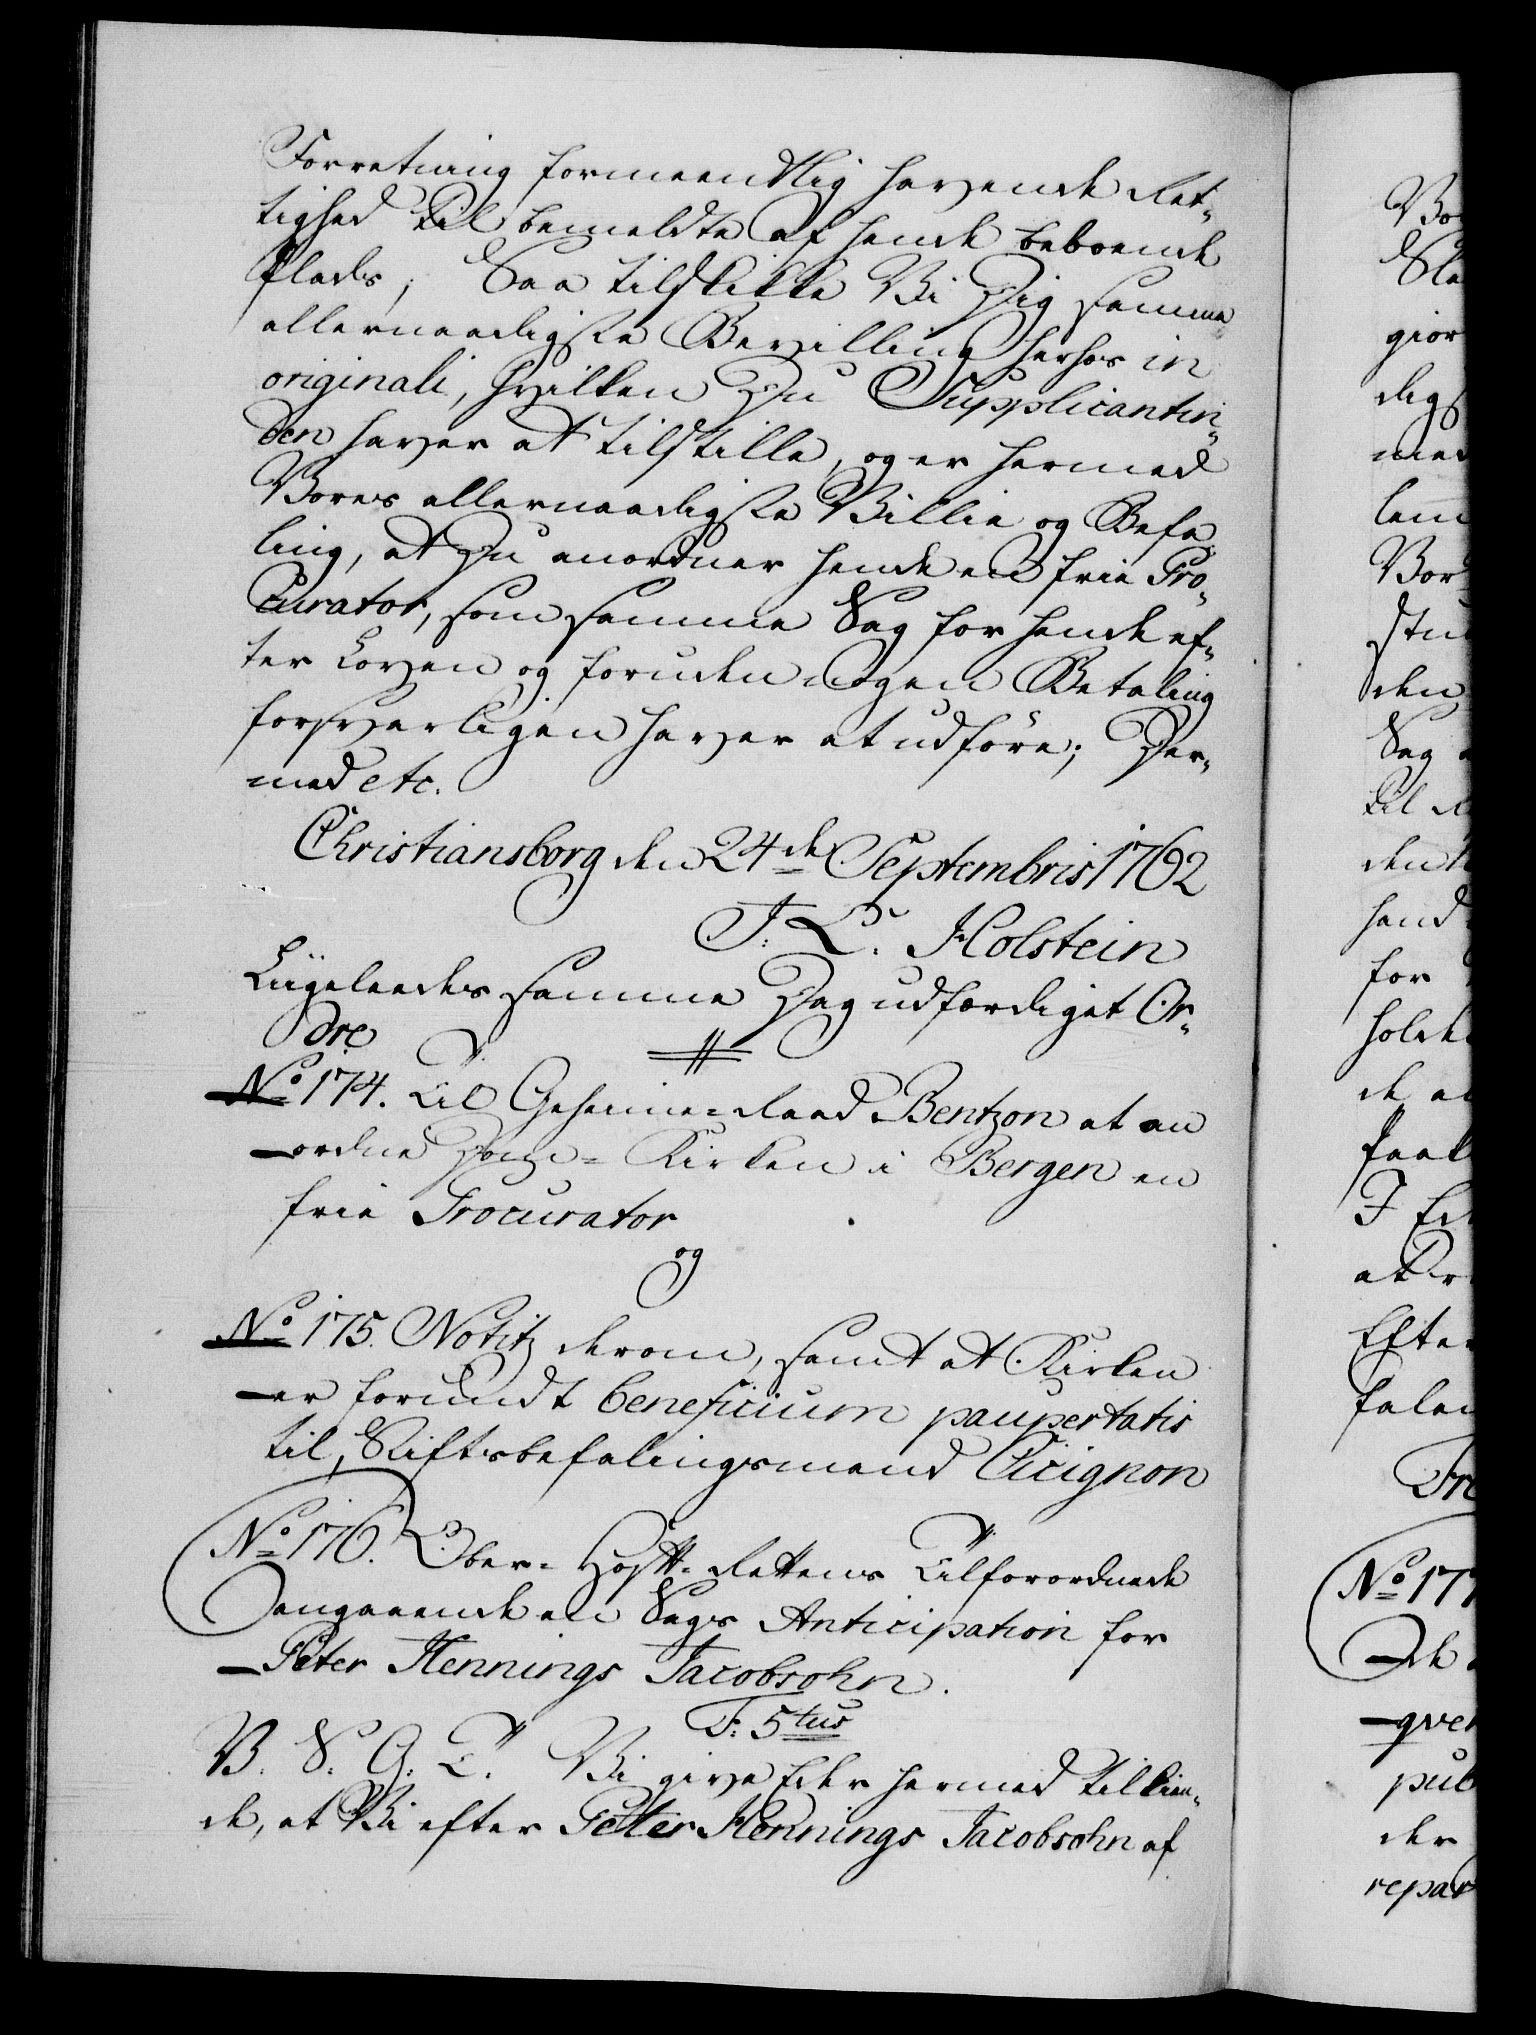 Forretning formeentlig havende Ret-
tighed til bemeldte af hende beboende
Plads; Saa tilskikke Vi Dig samme
allernaadigste Bevilling herhos in
originali, hvilken Du Supplicantin-
den haver at tilstille, og er hermed
Vores allernaadigste Villie og Befa-
ling, at Du anordner hende en frie Pro-
curator, som samme Sag for hende ef-
ter Loven og foruden nogen Betaling
forsvarligen haver at udføre; Der-
med etc.
Christiansborg den 24de Septembris 1762
J: L. Holstein
Liigeleedes samme Dag udfærdiget Or-
dre
No 174. Til Geheime-Raad Bentzon at an
ordne Dom-Kirken i Bergen en
frie Procurator
og
No 175. Notitz derom, samt at Kirken
er forundt beneficium paupertatis
til Stiftsbefalingsmand Cicignon
No 176. Ober-Hoff-Rettens Tilforordnede
angaaende en Sags Anticipation for
Peter Hennings Jacobsohn.
F: 5tus
V. S. G. T. Vi give Eder hermed tilkien-
de, at Vi efter Petter Hennings Jacobsohn af
Sla
gior
digs
med
Vor
den
Sag
til
for
de
at
Efter
No 177
der
repar